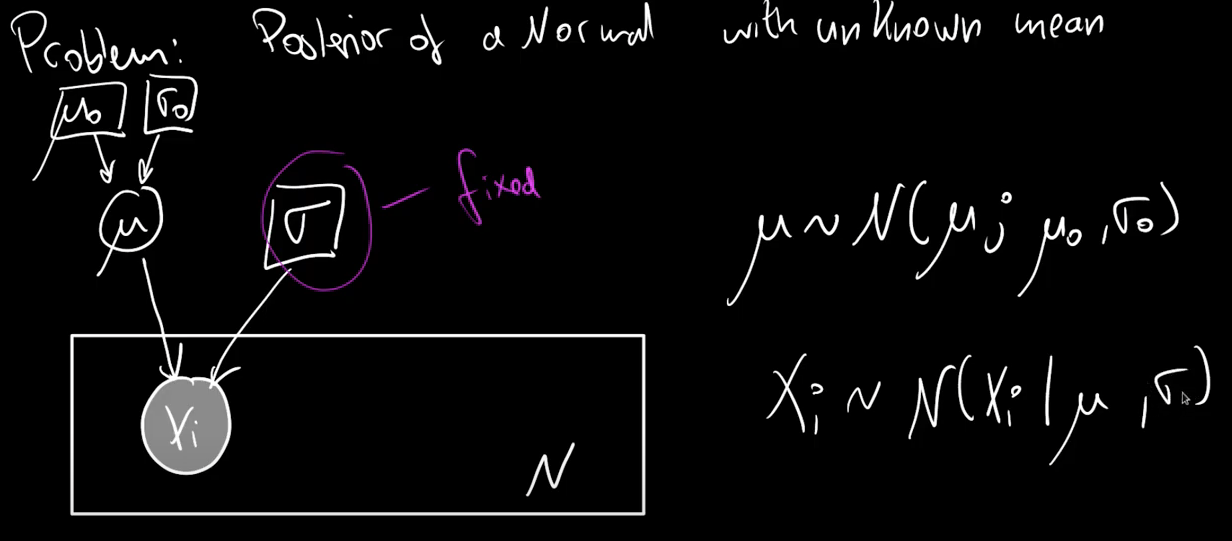 Problem: Posterior of a Normal with unknown mean
μ₀ σ₀
μ σ – fixed
μ ~ N(μ; μ₀, σ₀)
Xᵢ ~ N(Xᵢ | μ, σ)
Xᵢ
N